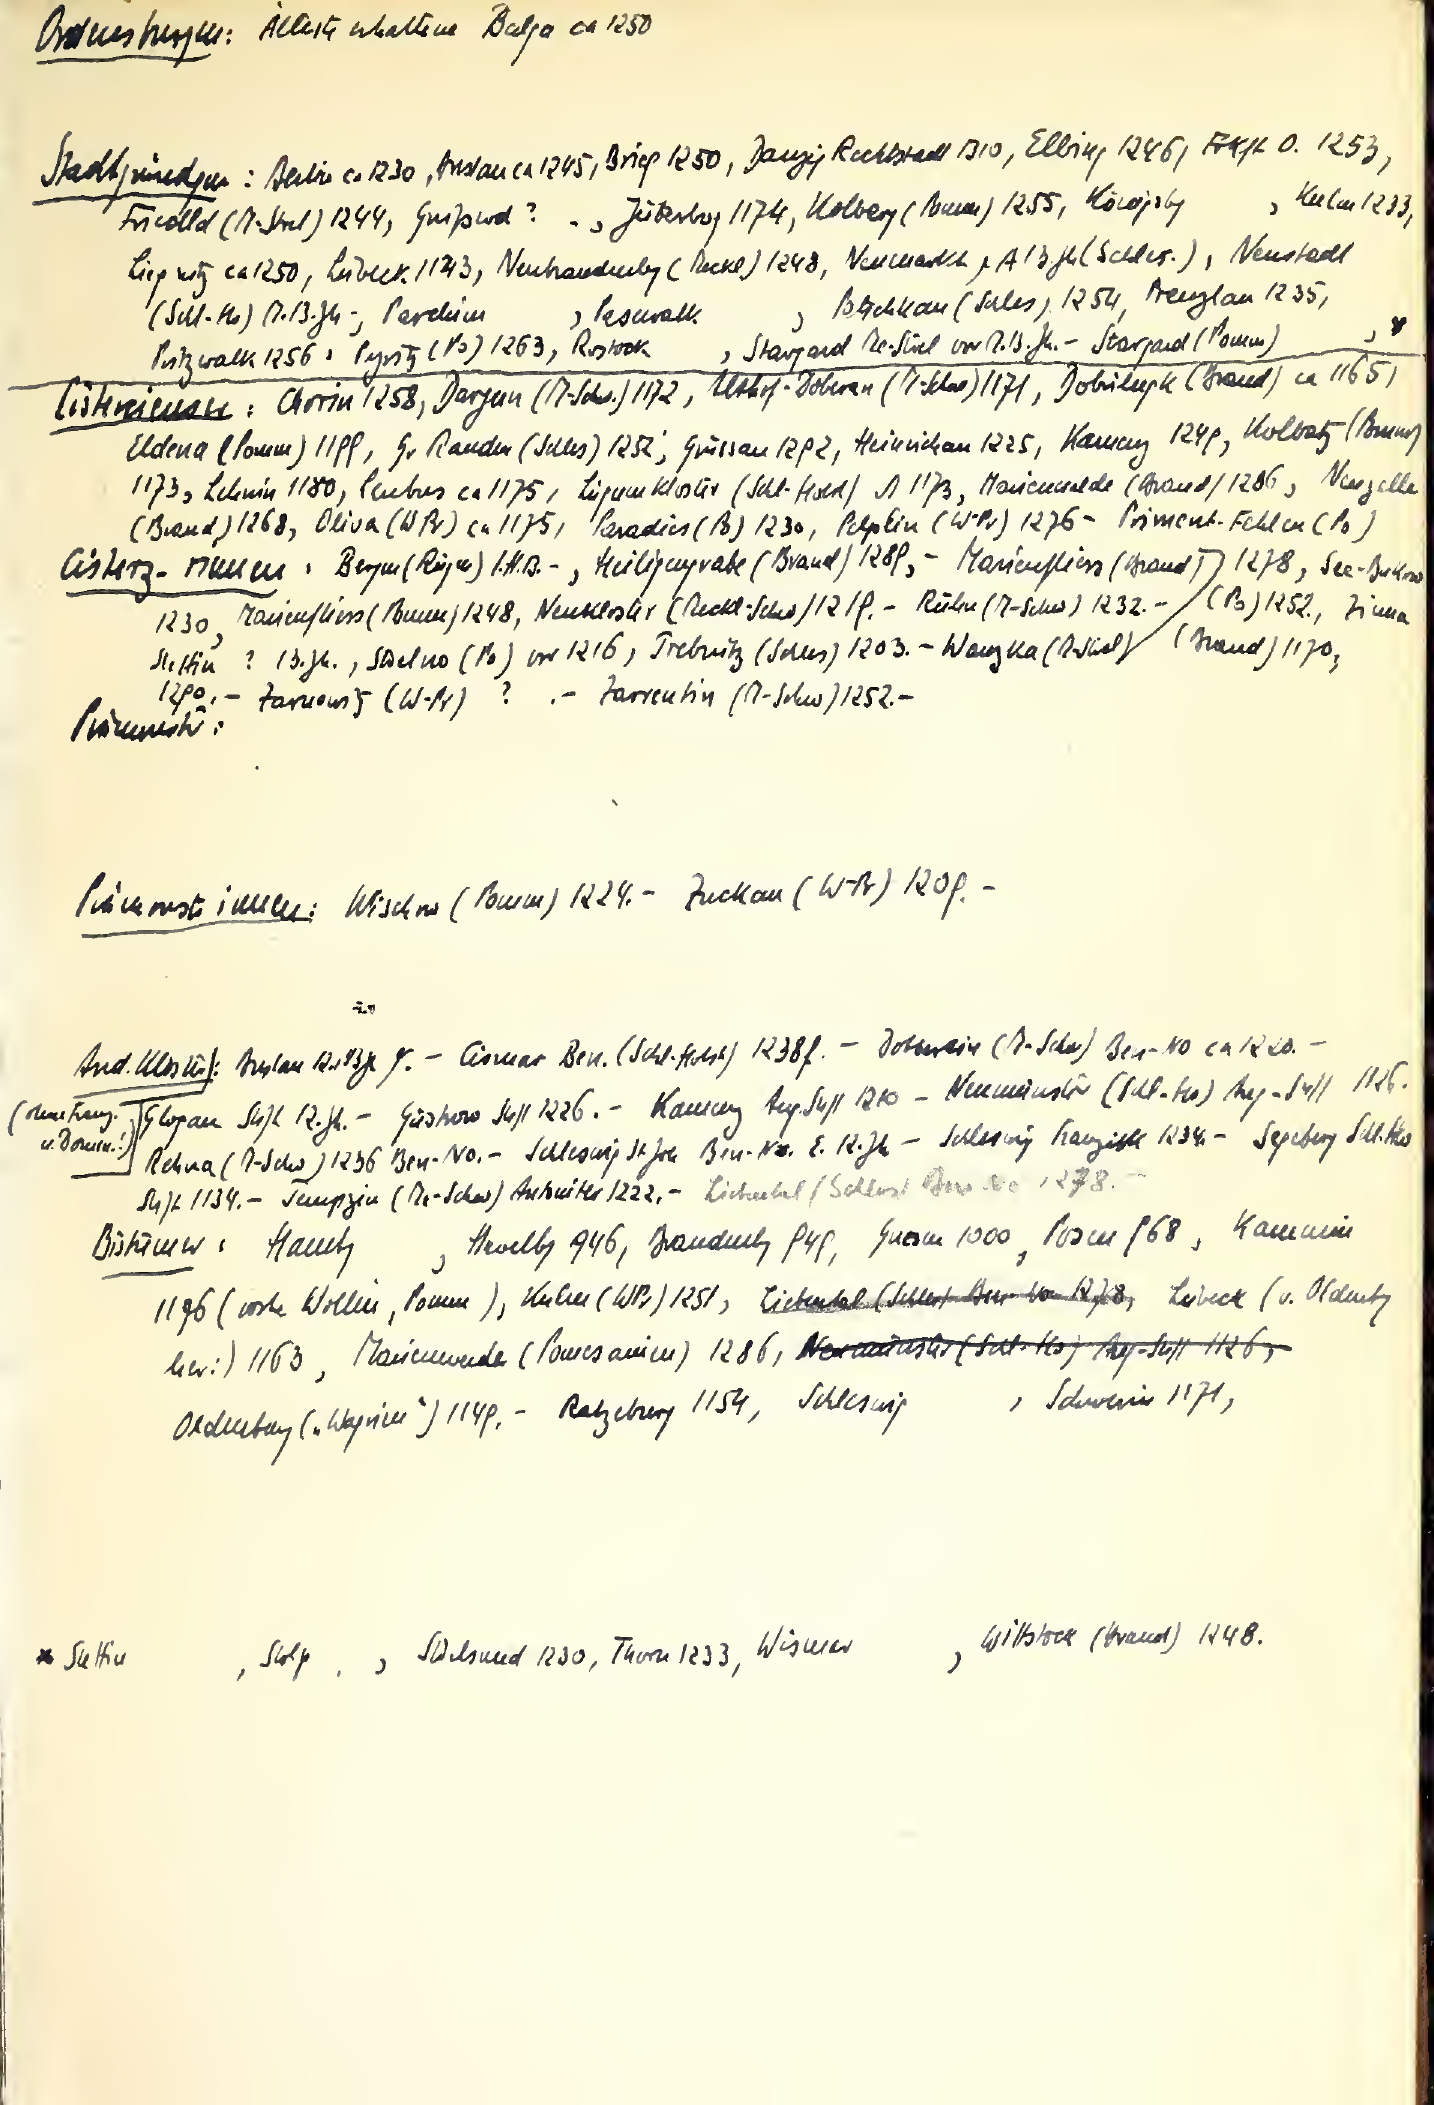 Ordensburgen: Älteste erhaltene Balga ca 1250
Stadtgründgen: Berlin ca 1230, Breslau ca 1245, Brieg 1250, Danzig Rechtstadt 1310, Elbing 1246, Frkft O. 1253,
Friedld (M-Strel) 1244, Greifswd ? , Jüterbog 1174, Kolberg (Pomm) 1255, Königsbg , Kulm 1233,
Liegnitz ca 1250, Lübeck 1143, Neubrandenbg (Meckl) 1248, Neumarkt, A 13. Jh (Schles.), Neustadt
(Schl-Ho) M. 13. Jh -, Parchim , Pasewalk , Patschkau (Schles) 1254, Prenzlau 1235,
Pritzwalk 1256, Pyritz (Po) 1263, Rostock , Stargard Me-Strel vor M. 13. Jh. - Stargard (Pomm) , *
Cisterzienser: Chorin 1258, Dargun (M-Schw.) 1172, Althof-Doberan (M-Schw) 1171, Dobrilugk (Brand) ca 1165,
Eldena (Pomm) 1199, Gr Rauden (Schles) 1252, Grüssau 1292, Heinrichau 1225, Kamenz 1249, Kolbatz (Pomm)
1173, Lehnin 1180, Leubus ca 1175, Lügumkloster (Schl-Holst) A 1173, Marienwalde (Brand) 1286, Neuzelle
(Brand) 1268, Oliva (WPr) ca 1175, Paradies (Po) 1230, Pelplin (W-Pr) 1276 - Priment-Fehlen (Po)
Cisterz-rinnen: Bergen (Rügen) 1.H.13. -, Heiligengrabe (Brand) 1289, - Marienfliess (Brand) 1278, See-Bukow
1230, Marienfliess (Pomm) 1248, Neukloster (Meckl-Schw) 1219. - Rühn (M-Schw) 1232. - (Po) 1252., Zinna
Stettin ? 13. Jh., Strelno (Po) vor 1216, Trebnitz (Schles) 1203. - Wanzka (M-Strel) (Brand) 1170,
1290. - Zarnowitz (W-Pr) ? . - Zarrentin (M-Schw) 1252. -
Prämonstr:
Prämonstr innen: Wischow (Pomm) 1224. - Zuckau (W-Pr) 1209. -
And. Klöster: Breslau 12. u 13. Jh - Cismar Ben. (Schl-Holst) 1238f. - Dobbertin (M-Schw) Ben-No ca 1220. -
(ohne Franz. u. Domin.!) Glogau Stift 12. Jh. - Güstrow Stift 1226. - Kamenz Aug Stift 1210 - Neumünster (Schl-Ho) Aug-Stift 1126.
Rehna (M-Schw) 1236 Ben-No. - Schleswig St Joh Ben-No. E. 12. Jh - Schleswig Franzisk 1234. - Segeberg Schl.Ho
Stift 1134. - Tempzin (Me-Schw) Antoniter 1222. - Liebental (Schles) Ben No 1278. -
Bistümer: Hambg , Havelbg 946, Brandenbg 949, Gnesen 1000, Posen 968, Kammin
1176 (vorhe Wollin, Pomm), Kulm (WPr) 1251, Liebental (Schles) Ben No 1278, Lübeck (v. Oldenbg
her:) 1163, Marienwerder (Pomesanien) 1286, Neumünster (Schl-Ho) Aug-Stift 1126,
Oldenburg („Wagrien“) 1149. - Ratzeburg 1154, Schleswig , Schwerin 1171,
* Stettin , Stolp , Stralsund 1230, Thorn 1233, Wismar , Wittstock (Brand) 1248.